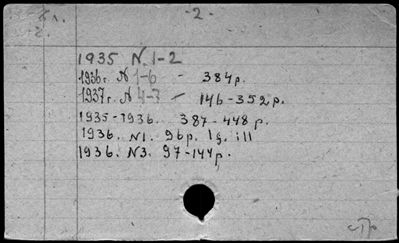 - 2 -
1935 N. 1-2
1936 г. N 1-6 - 384 p.
1937 г. N 4-7 - 146-352 p.
1935-1936. 387-448 p.
1936. N1. 96 p. 1 g. ill
1936. N3. 97-144 p.